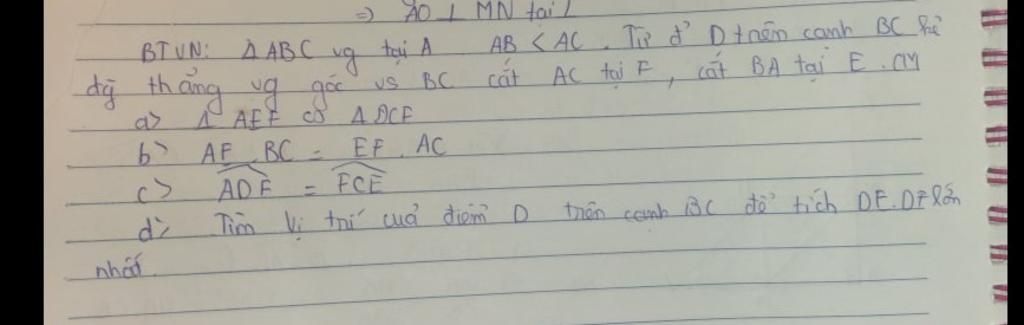 => AO ⊥ MN tại I
BTVN: Δ ABC vg tại A AB < AC. Từ đ' D trên cạnh BC kẻ
đg̃ thẳng vg góc vs BC cắt AC tại F, cắt BA tại E. CM
a> Δ AEF ∽ Δ DCF
b> AF . BC = EF . AC
c> \widehat{ADF} = \widehat{FCE}
d> Tìm vị trí của điểm D trên cạnh BC để tích DE.DF lớn
nhất.